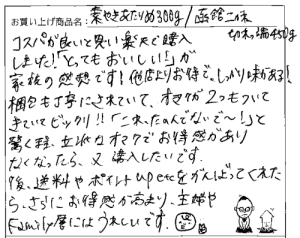 お買い上げ商品名: 素やきあたりめ300g/函館こがね
切れ端450g
コスパが良いと思い楽天で購入
しました!「とってもおいしい!」が
家族の感想です!他店よりお得で、しっかり味がある!
梱包も丁寧にされていて、オマケが2つもついて
きていてビックリ!!「これ、たのんでないで〜!」と
驚く程、立派なオマケでお得感があり
なくなったら、又購入したいです。
後、送料やポイントUPetcをがんばってくれた
ら、さらにお得感が高まり、主婦や
Family層にはうれしいです。